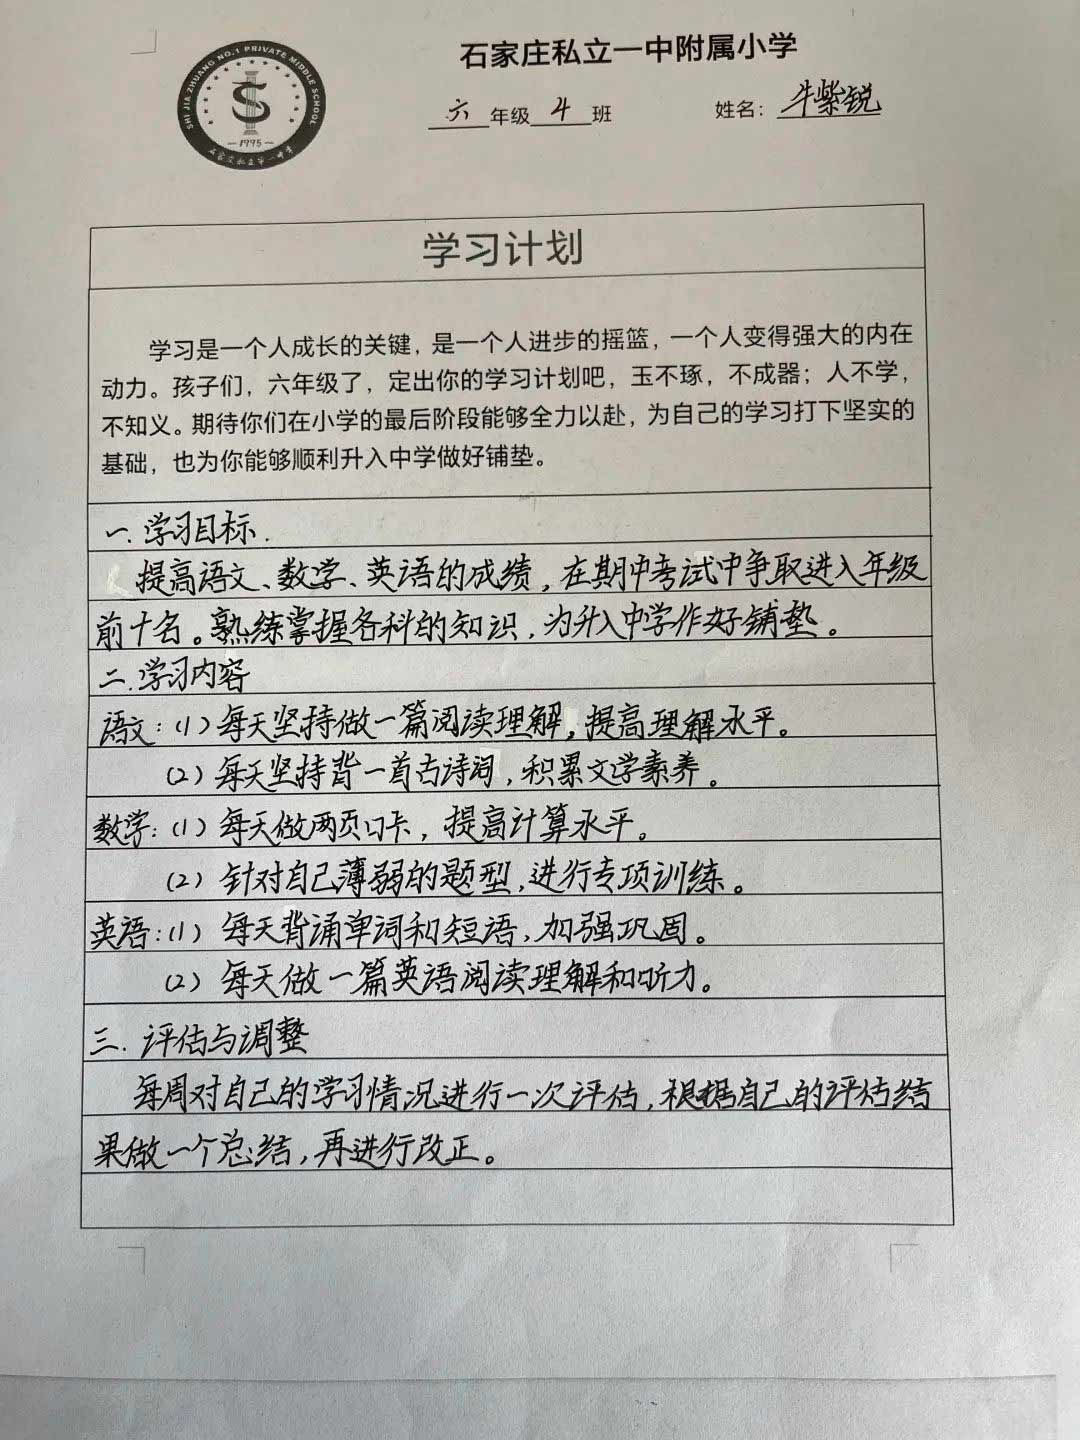 SHI JIA ZHUANG NO.1 PRIVATE MIDDLE SCHOOL
1995
石家庄私立第一中学
石家庄私立一中附属小学
六年级 4 班 姓名: 牛紫锐
学习计划
学习是一个人成长的关键，是一个人进步的摇篮，一个人变得强大的内在
动力。孩子们，六年级了，定出你的学习计划吧，玉不琢，不成器；人不学，
不知义。期待你们在小学的最后阶段能够全力以赴，为自己的学习打下坚实的
基础，也为你能够顺利升入中学做好铺垫。
一.学习目标.
提高语文、数学、英语的成绩，在期中考试中争取进入年级
前十名。熟练掌握各科的知识，为升入中学作好铺垫。
二.学习内容
语文：(1)每天坚持做一篇阅读理解，提高理解水平。
(2)每天坚持背一首古诗词，积累文学素养。
数学：(1)每天做两页口卡，提高计算水平。
(2)针对自己薄弱的题型，进行专项训练。
英语：(1)每天背诵单词和短语，加强巩固。
(2)每天做一篇英语阅读理解和听力。
三.评估与调整
每周对自己的学习情况进行一次评估，根据自己的评估结
果做一个总结，再进行改正。